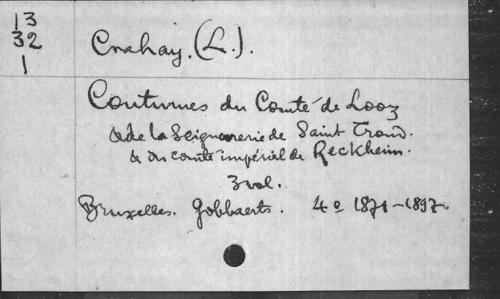 13
32
1
Crahay. (L.).
Coutumes du Comté de Looz
& de la Seigneurerie de Saint Trond.
& du comté impérial de Reckheim.
3 vol.
Bruxelles. Gobbaerts. 4º 1871-1897